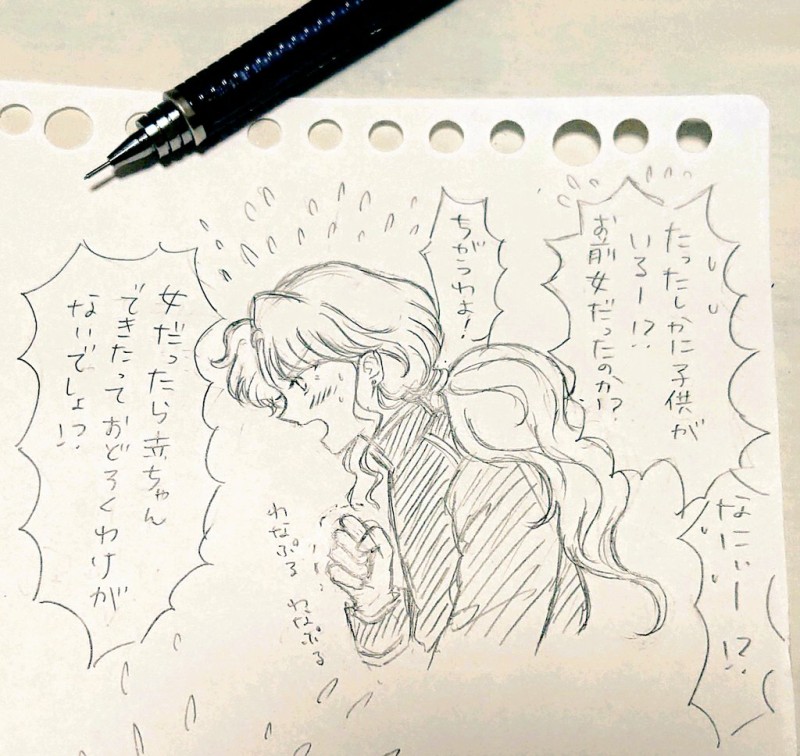 たったしかに子供が
いるー!?
お前女だったのか!?
なにぃー!?
ちがうわよ!
女だったら赤ちゃん
できたっておどろくわけが
ないでしょ!?
わなぷる
わなぷる